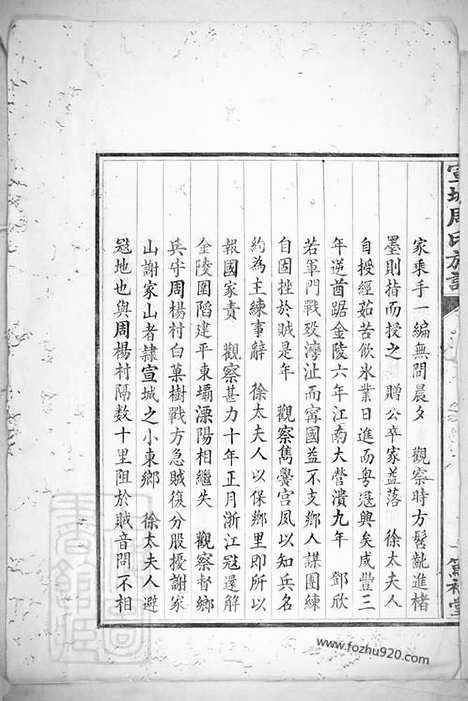 宣城周氏族譜
家乘手一編無間晨夕　觀察時方髫齔進楮
墨則指而授之　贈公卒家益落　徐太夫人
自授經茹苦飲氷業日進而粵冦興矣咸豐三
年逆酋踞金陵六年江南大營潰九年　鄧欣
若軍門戰歿灣沚而寗國益不支鄉人謀團練
自固挫於賊是年　觀察雋黌宮夙以知兵名
約為主練事辭　徐太夫人以保鄉里即所以
報國家責　觀察甚力十年正月浙江冦還解
金陵圍䧟建平東壩溧陽相繼失　觀察督鄉
兵守周楊村白菓樹戰方急賊復分股擾謝家
山謝家山者隸宣城之小東鄉　徐太夫人避
冦地也與周楊村隔数十里阻於賊音問不相
www.fozhu920.com